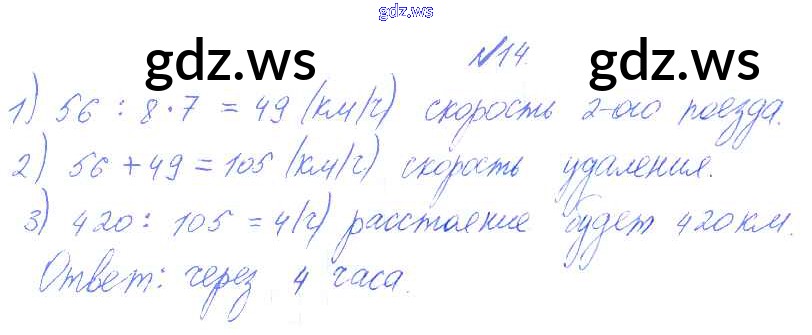 gdz.ws
gdz.ws gdz.ws
№14.
1) 56 : 8 · 7 = 49 (км/ч) скорость 2-ого поезда.
2) 56 + 49 = 105 (км/ч) скорость удаления.
3) 420 : 105 = 4 (ч) расстояние будет 420 км.
Ответ: через 4 часа.